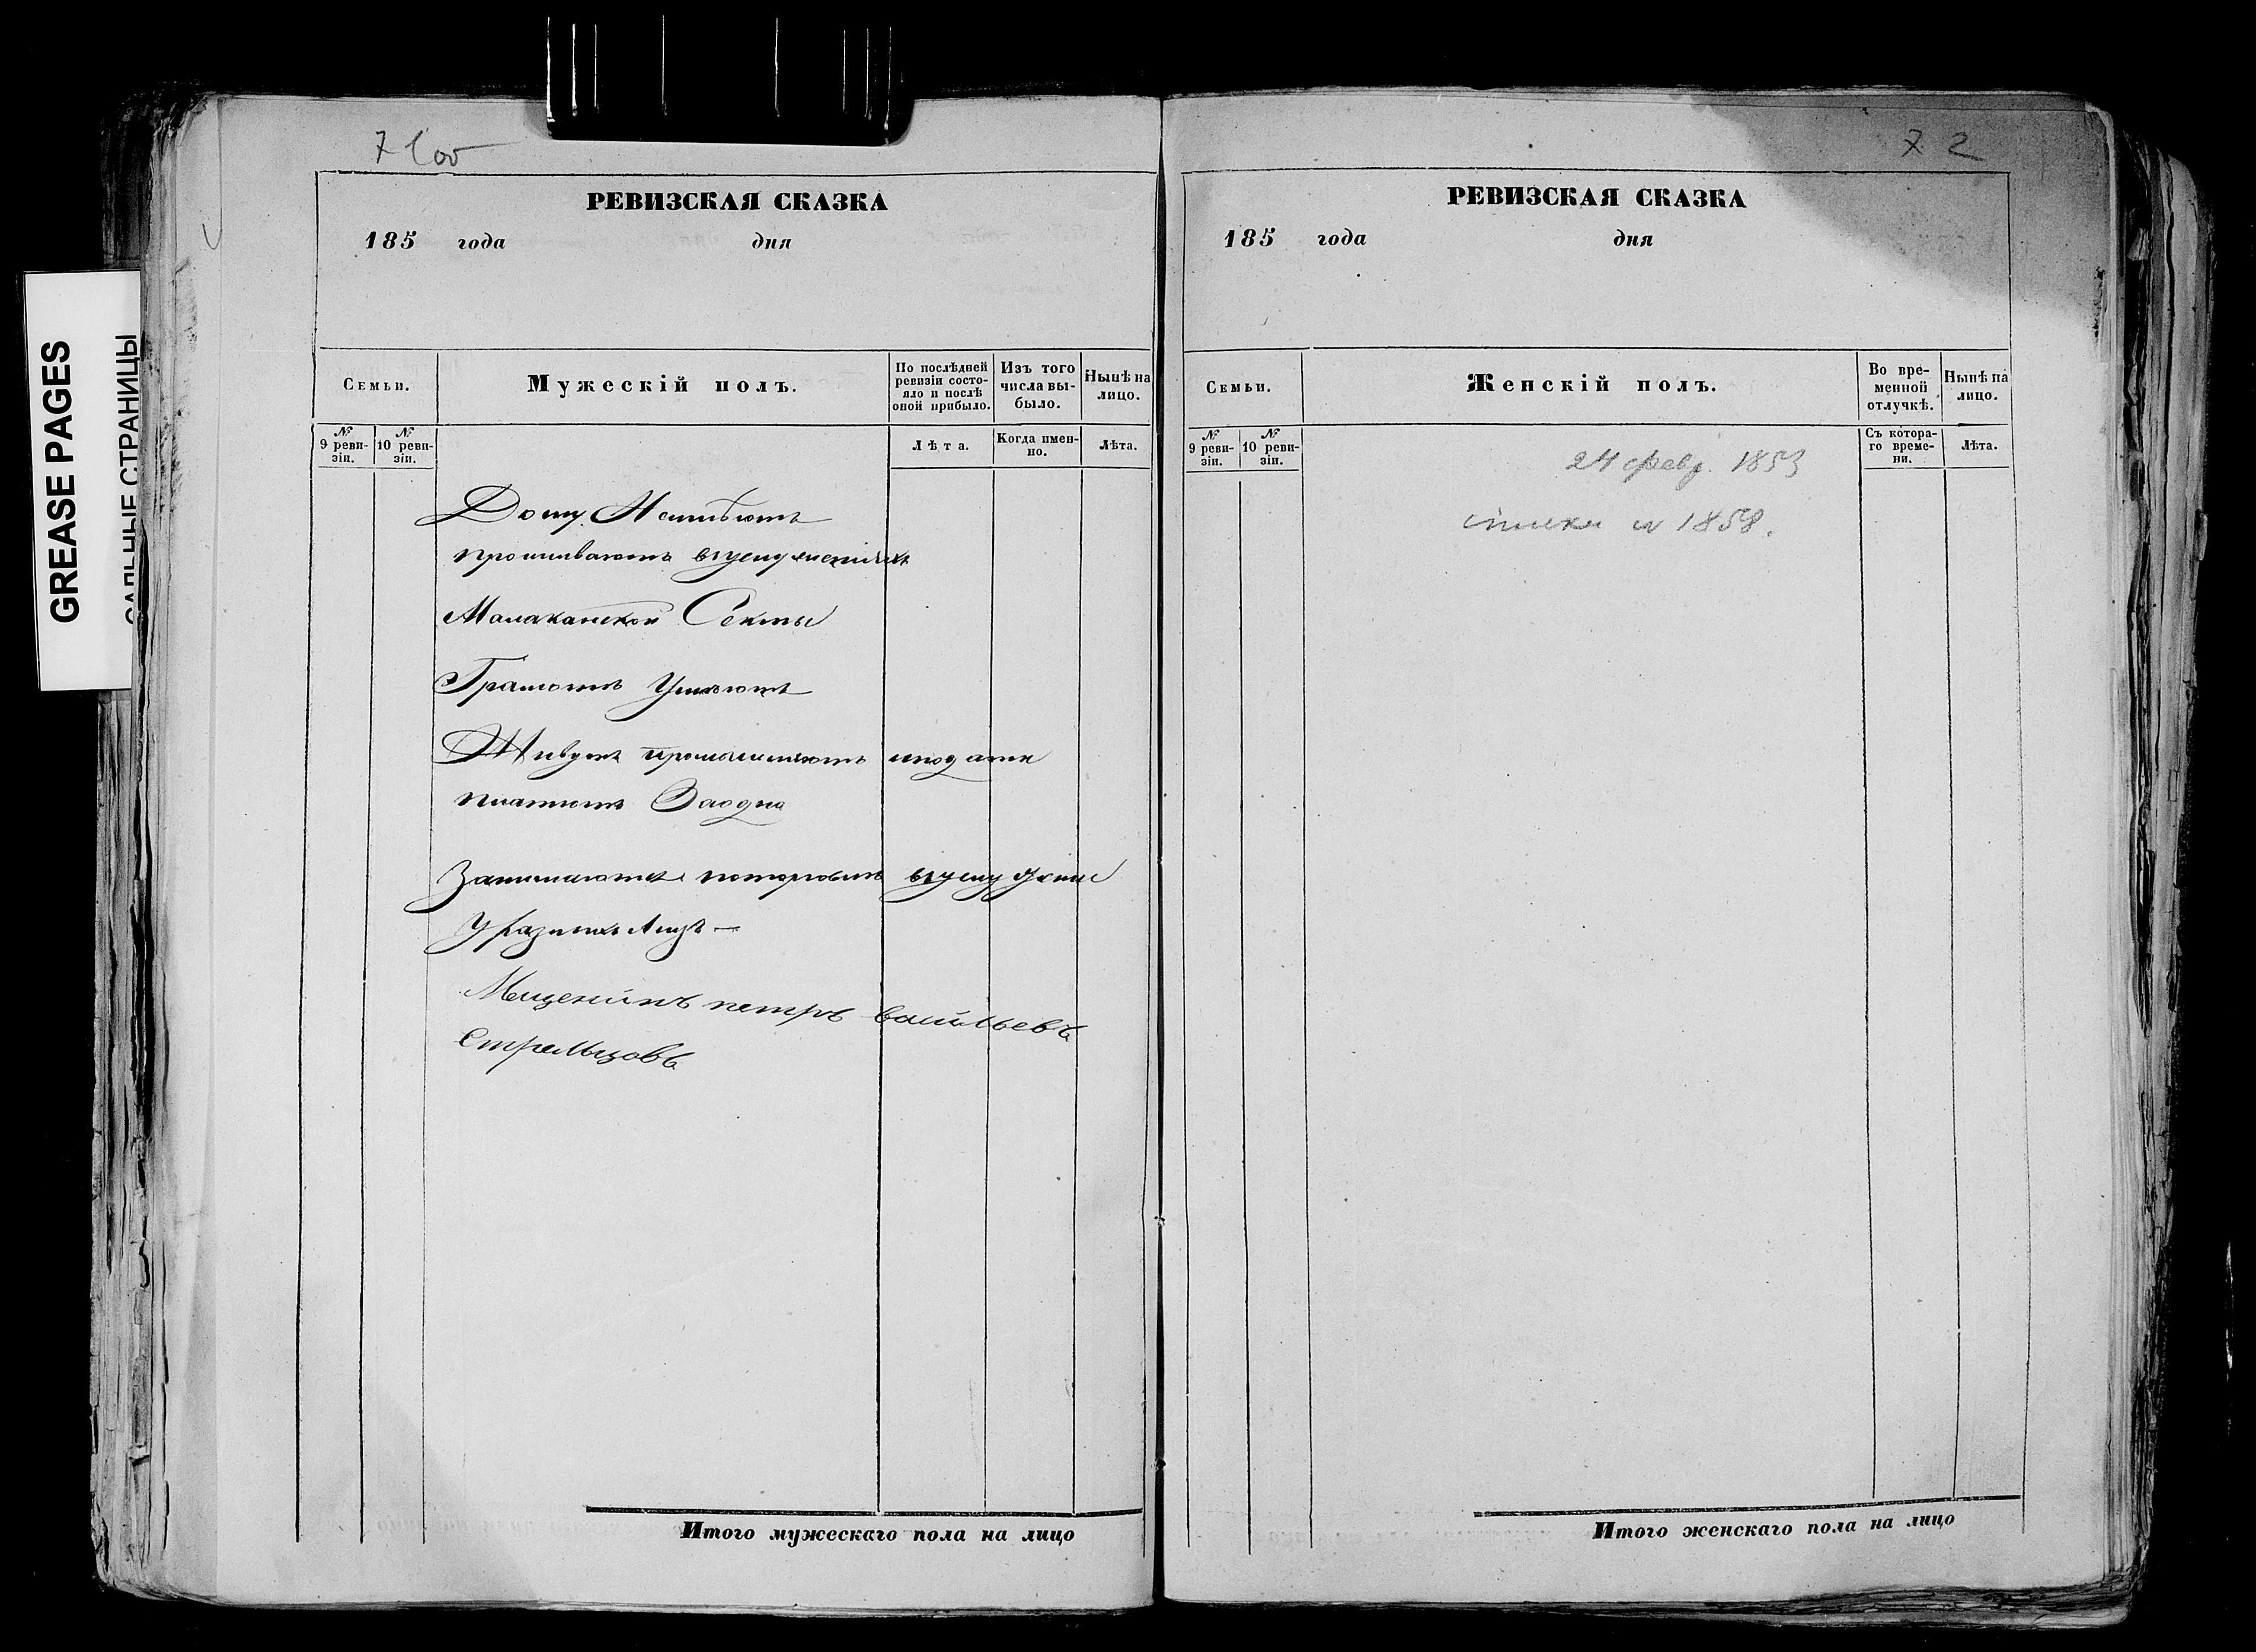 GREASE PAGES
САЛЬНЫЕ СТРАНИЦЫ
71 об
РЕВИЗСКАЯ СКАЗКА
185 года дня
Семьи.
Мужескій полъ.
По послѣдней ревизіи состояло и послѣ оной прибыло.
Изъ того числа выбыло.
Нынѣ на лицо.
№ 9 ревизіи.
№ 10 ревизіи.
Лѣта.
Когда именно.
Лѣта.
Дому Неимѣютъ
проживаютъ
Малаканской Секты
Грамотѣ Умѣютъ
Живутъ промышляютъ иподати
платютъ Заодно
Занимаются
Уразныхъ Лицъ —
Мещенинъ петръ васильевъ
Стрельцовъ
Итого мужескаго пола на лицо
72
РЕВИЗСКАЯ СКАЗКА
185 года дня
Семьи.
Женскій полъ.
Во временной отлучкѣ.
Нынѣ на лицо.
№ 9 ревизіи.
№ 10 ревизіи.
Съ котораго времени.
Лѣта.
24 февр. 1853
1858.
Итого женскаго пола на лицо